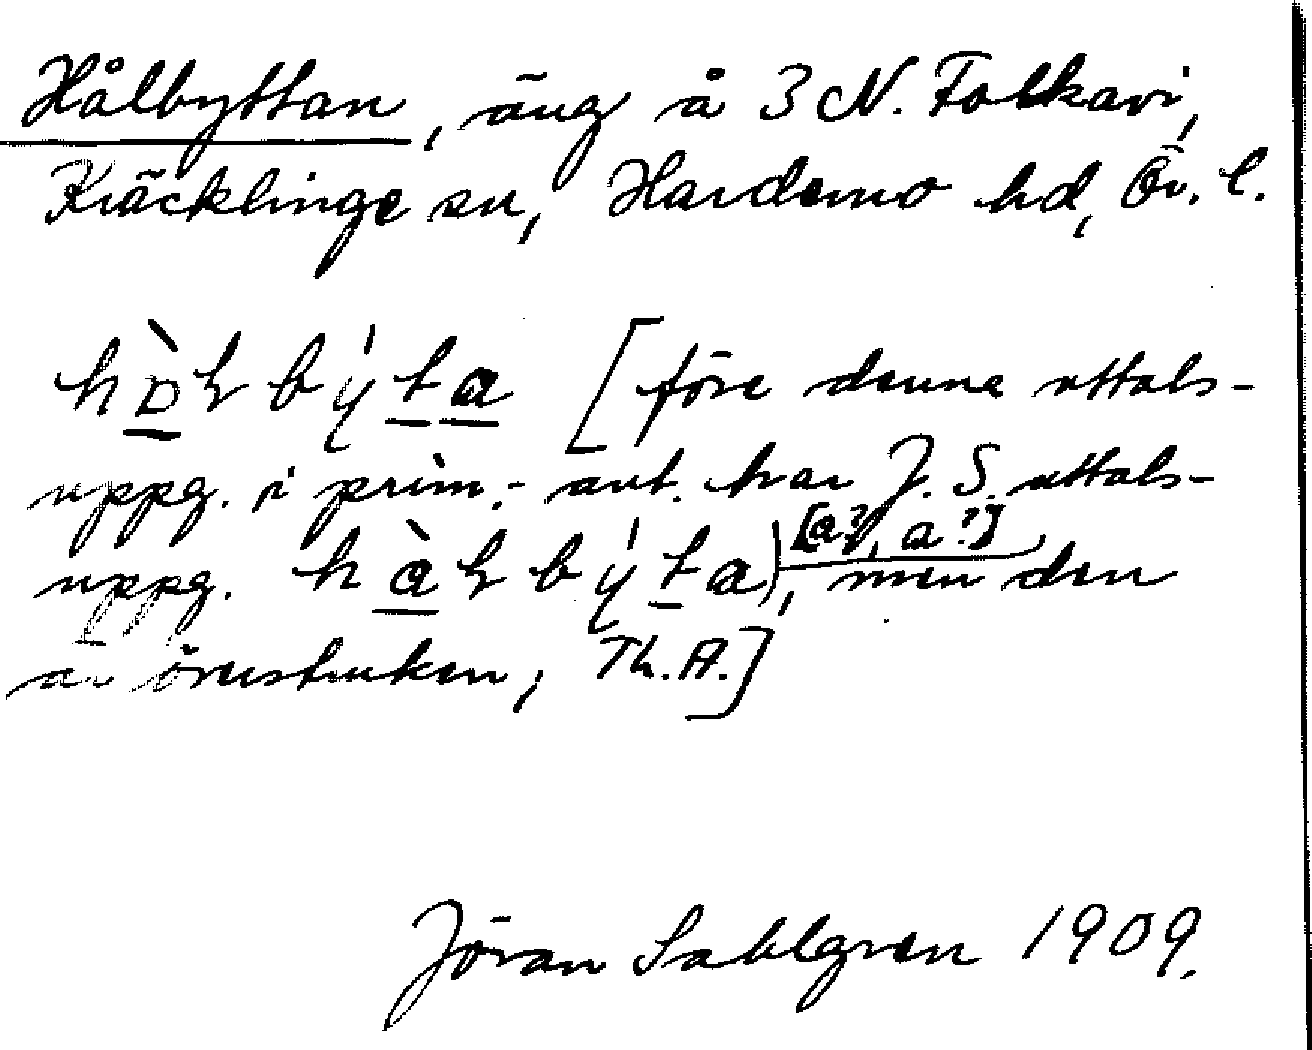 Hålbyttan, äng å 3 N. Folkavi,
Kräcklinge sn, Hardemo hd, Ör. l.
[före denna uttals-
uppg. i prim.- ant. har J. S. uttals-
uppg. [a?, a?], men den
är överstruken, Th. A.]
Jöran Sahlgren 1909.